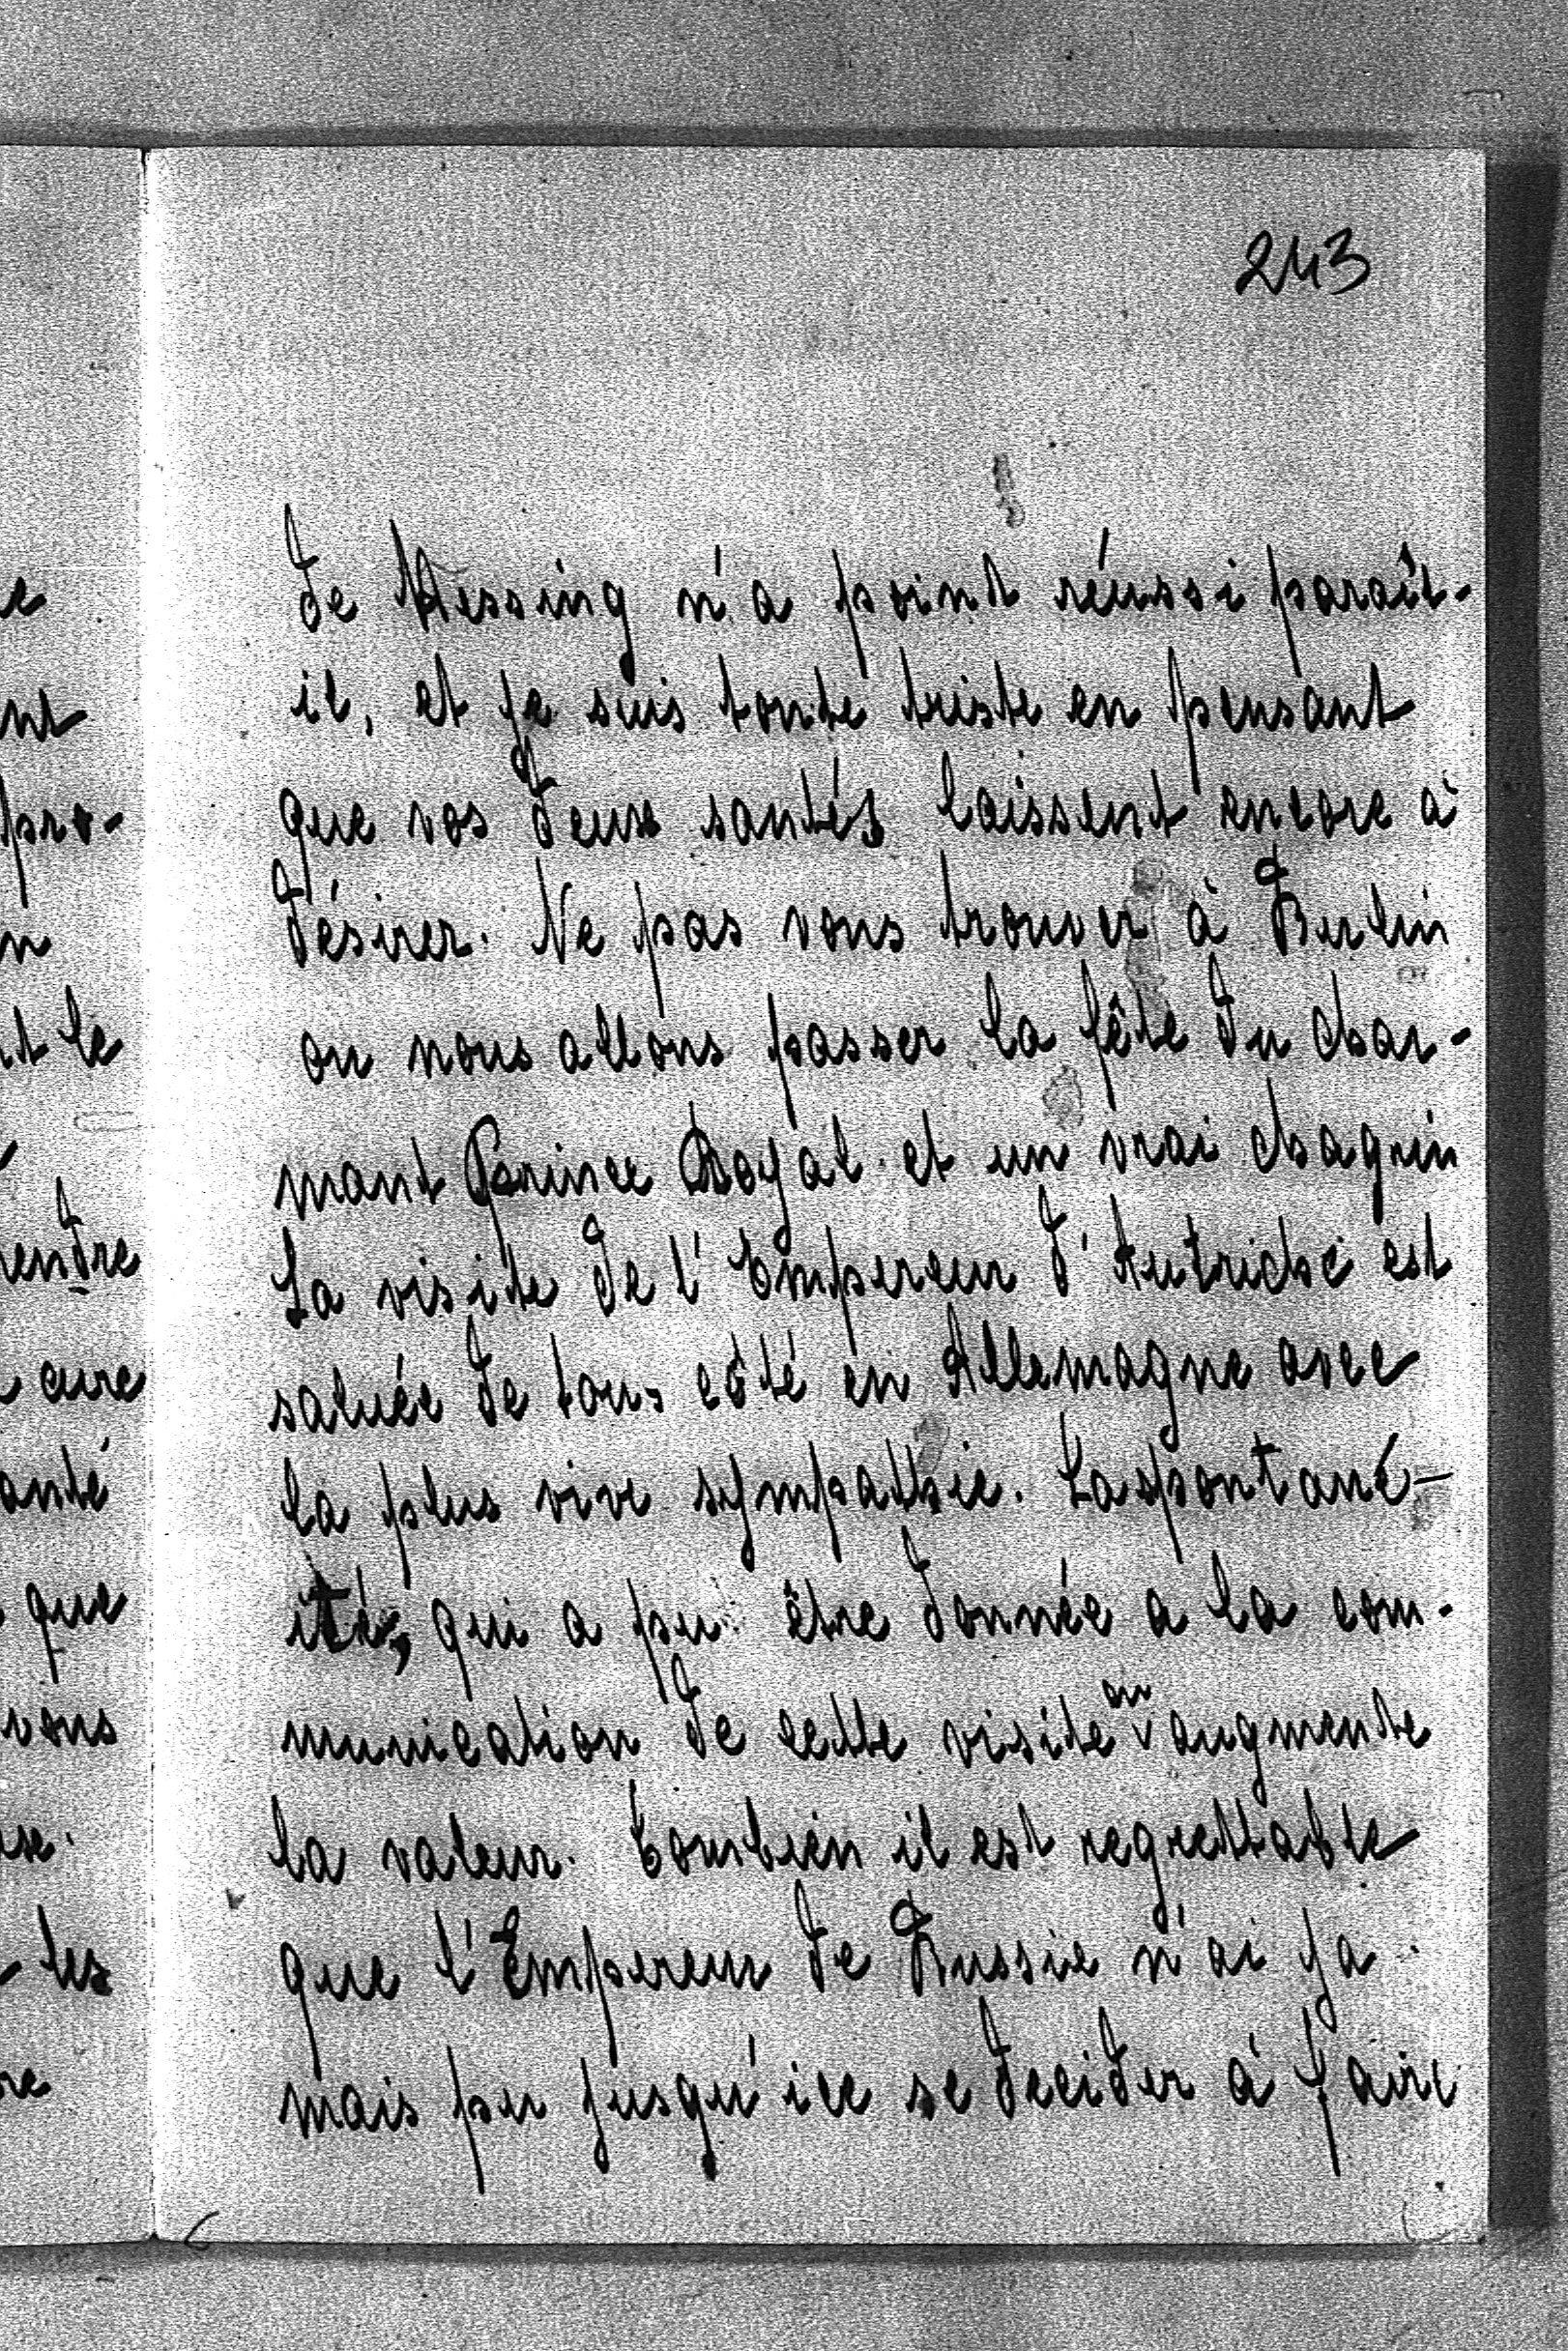 243
de Kissing n'a point réussi paraît-
il, et je suis toute triste en pensant
que vos deux santés laissent encore à
désirer. Ne pas vous trouver à Berlin
ou nous allons passer la fête du char-
mant Prince Royal et un vrai chagrin
La visite de l'Empereur d'Autriche est
saluée de tous côté en Allemagne avec
la plus vive sympathie. La spontané-
ité, qui a pu être donnée a la com-
munication de cette visite en augmente
la valeur. Combien il est regrettable
que l'Empereur de Russie n'ai ja
mais pu jusqu'ice se decider à faire
pro-
le
endre
cure
anté
que
vous
les